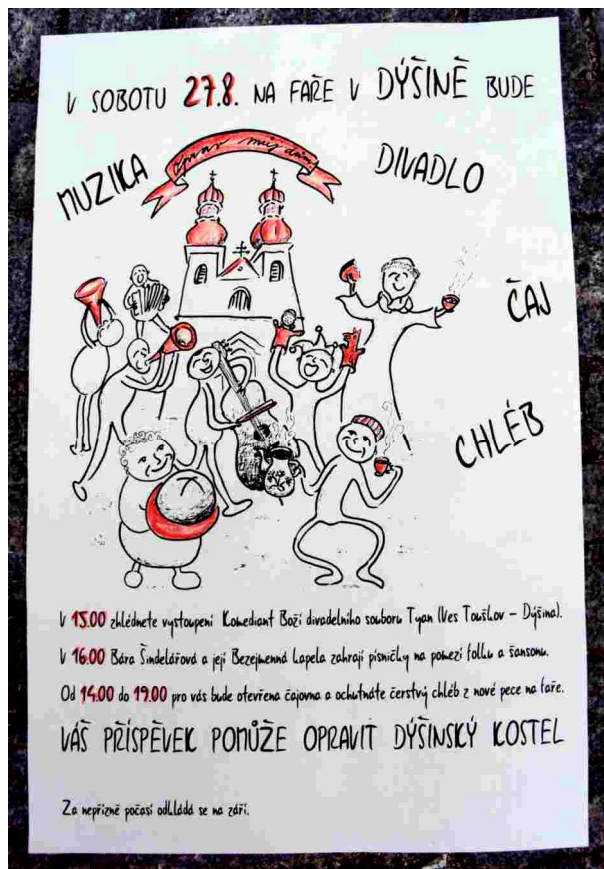 V SOBOTU 27.8. NA FAŘE V DÝŠINĚ BUDE
Oprav můj dům
MUZIKA
DIVADLO
ČAJ
CHLÉB
V 15.00 zhlédnete vystoupení Komediant Boží divadelního souboru Tyan (Ves Touškov – Dýšina).
V 16.00 Bára Šindelářová a její Bezejmenná Lapela zahrají písničky na pomezí folku a šansonu.
Od 14.00 do 19.00 pro vás bude otevřena čajovna a ochutnáte čerstvý chléb z nové pece na faře.
VÁŠ PŘÍSPĚVEK POMŮŽE OPRAVIT DÝŠINSKÝ KOSTEL
Za nepřízně počasí odkládá se na září.